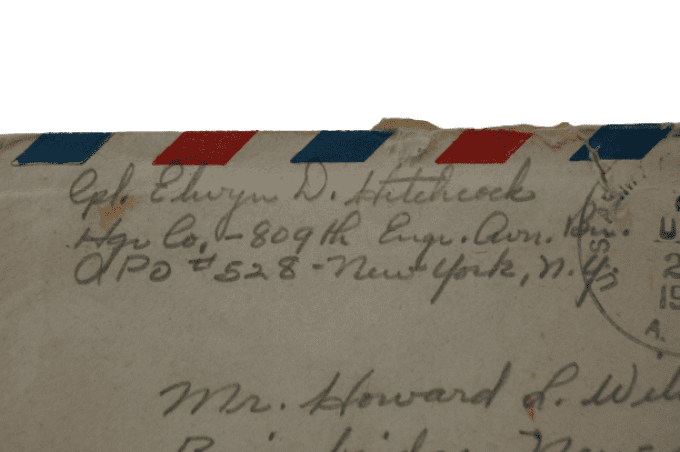 Cpl. Elwyn D. Hitchcock
Hqr Co, - 809th Engr. Avn. Bn.
APO # 528 - New York, N.Y.
U.S. AR
U
2
19
A.
Mr. Howard L.